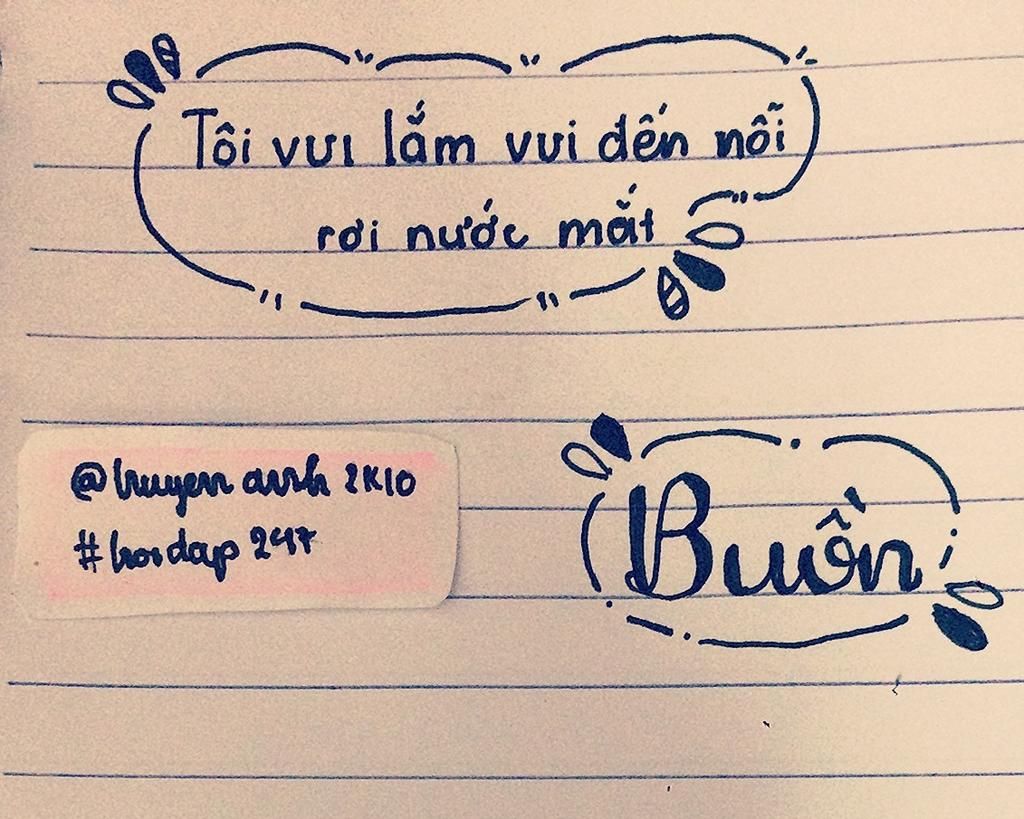 Tôi vui lắm vui đến nỗi
rơi nước mắt
@huyen anh 2K10
#hoidap 247
Buồn